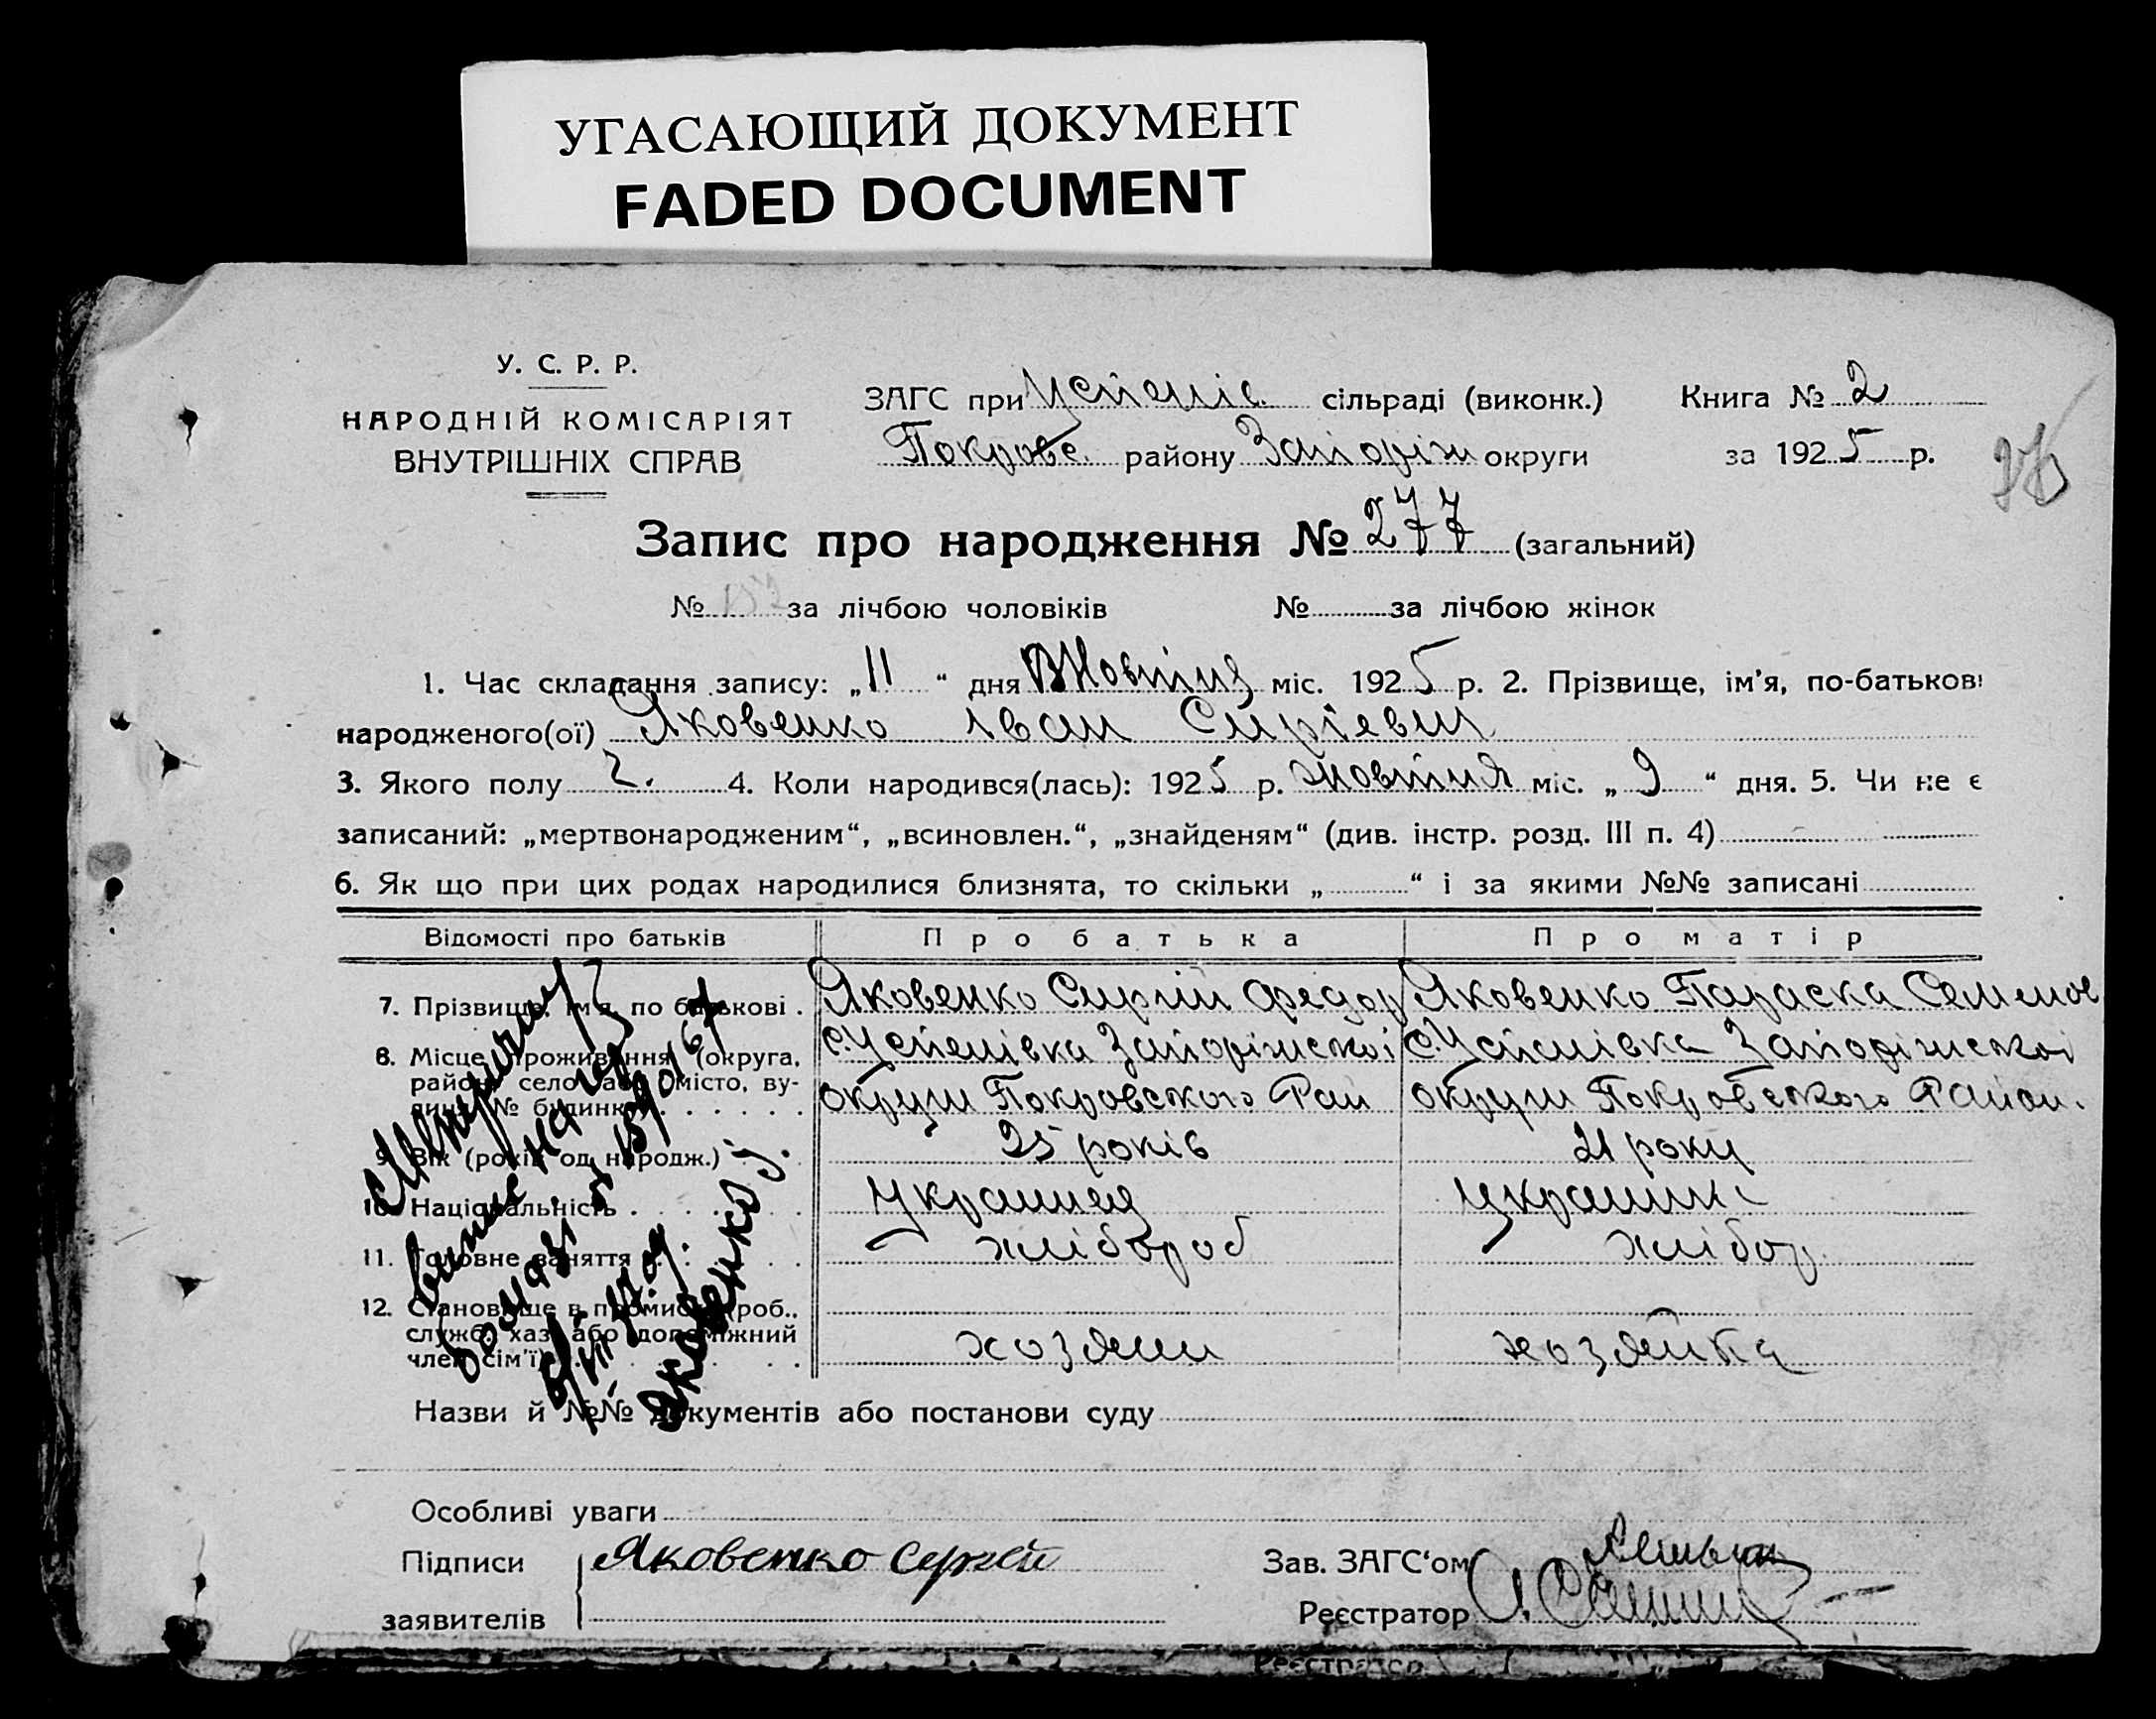 УГАСАЮЩИЙ ДОКУМЕНТ
FADED DOCUMENT
У. С. Р. Р.
НАРОДНІЙ КОМІСАРІЯТ
ВНУТРІШНІХ СПРАВ
ЗАГС при Успенів. сільраді (виконк.)
Покровс. району Запоріж округи
Книга № 2
за 1925 р.
Запис про народження № 277 (загальний)
№ 152 за лічбою чоловіків № за лічбою жінок
1. Час складання запису: „11“ дня Жовтня міс. 1925 р. 2. Прізвище, ім'я, по-батькові
народженого(ої) Яковенко Іван Сиргіевич
3. Якого полу ч. 4. Коли народився(лась): 1925 р. жовтня міс. „9“ дня. 5. Чи не є
записаний: „мертвонародженим“, „всиновлен.“, „знайденям“ (див. інстр. розд. III п. 4)
6. Як що при цих родах народилися близнята, то скільки „ “ і за якими №№ записані
Відомості про батьків Про батька Про матір
7. Прізвище, ім'я, по батькові . Яковенко Сиргій Федор Яковенко Параска Семенов
8. Місце проживання (округа, с. Успенівка Запоріжської с. Успенівка Запоріжської
район, село або місто, ву-
лиця № будинку) округи Покровського Рай округи Покровського Район.
9. Вік (років од народж.) 25 років 21 року
10. Національність украинец украинк
11. Головне заняття хлібороб хлібор.
12. Становище в промислі (роб.,
служб. хаз. або допоміжний
член сім'ї) хозяин хозяйка
Яковенко
Назви й №№ документів або постанови суду
Особливі уваги
Підписи Яковенко Сергей Зав. ЗАГС‘ом
заявителів Реєстратор
Реєстратор